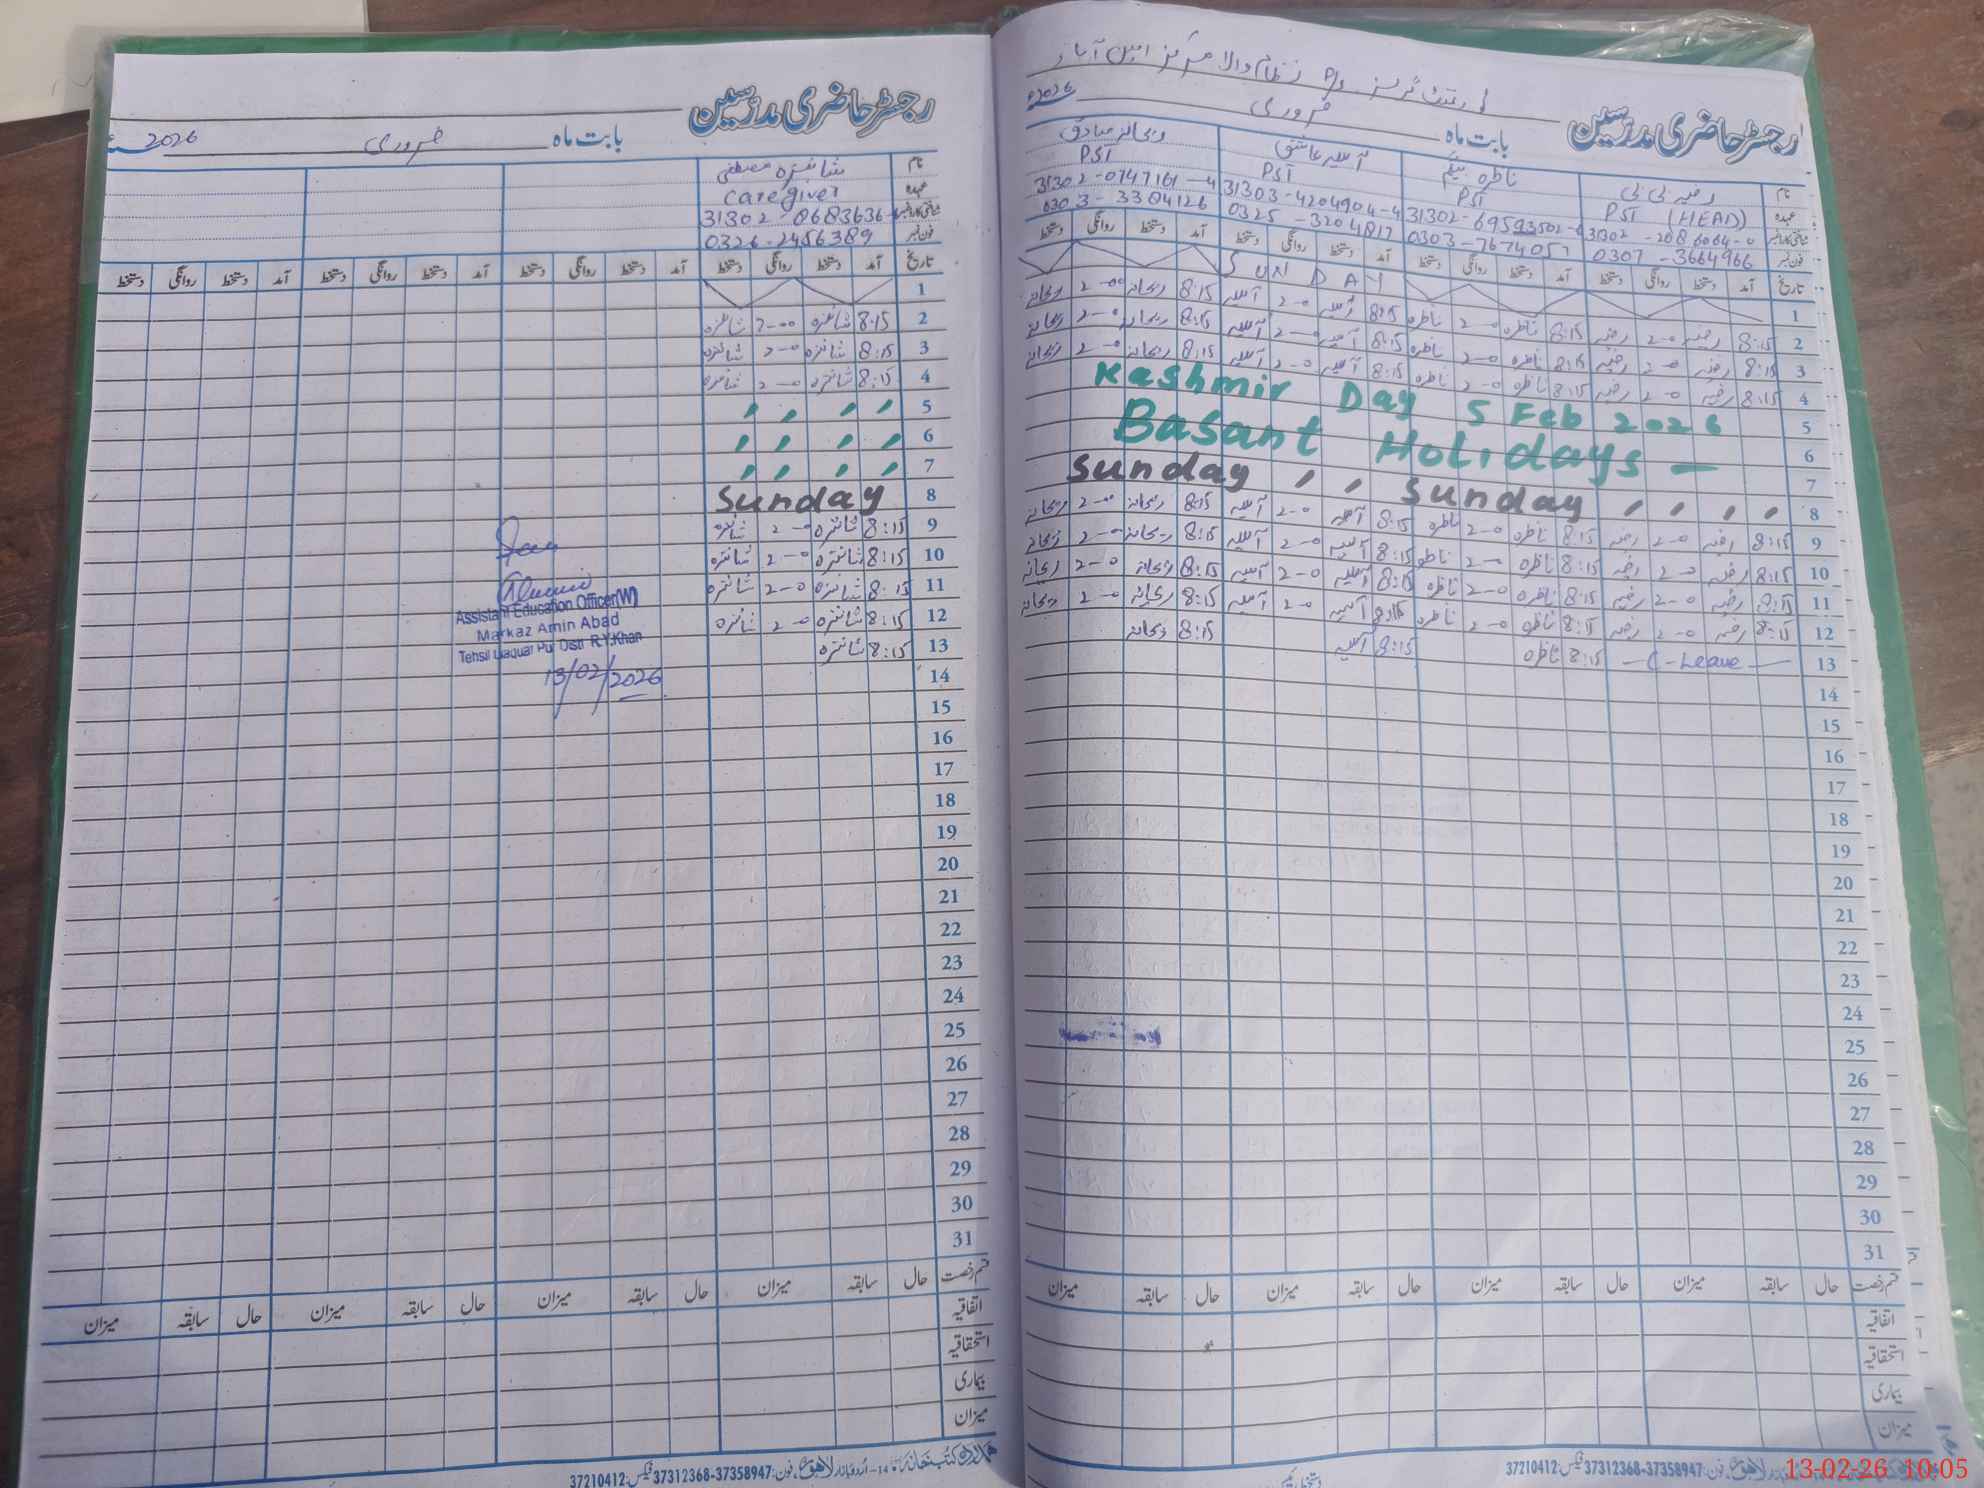 رجسٹر حاضری مدرسین
بابت ماہ فروری 2026ء
گورنمنٹ گرلز P/S نظام والا مرکز امین آباد
نام رضیہ بی بی ناظرہ بیگم آسیہ عاشق ریحانہ صادق
عہدہ PST (HEAD) PST PST PST
فون نمبر 0307-3664966 0303-7674057 0325-3204817 0303-3304126
تاریخ آمد دستخط روانگی دستخط آمد دستخط روانگی دستخط آمد دستخط روانگی دستخط آمد دستخط روانگی دستخط
1 SUNDAY
2 8:15 رضیہ 2-0 رضیہ 8:15 ناظرہ 2-0 ناظرہ 8:15 آسیہ 2-0 آسیہ 8:15 ریحانہ 2-00 ریحانہ
3 8:15 رضیہ 2-0 رضیہ 8:15 ناظرہ 2-0 ناظرہ 8:15 آسیہ 2-0 آسیہ 8:15 ریحانہ 2-0 ریحانہ
4 8:15 رضیہ 2-0 رضیہ 8:15 ناظرہ 2-0 ناظرہ 8:15 آسیہ 2-0 آسیہ 8:15 ریحانہ 2-0 ریحانہ
5 Kashmir Day 5 Feb 2026
6 Basant Holidays -
7
8 Sunday , , Sunday , , , ,
9 8:15 رضیہ 2-0 رضیہ 8:15 ناظرہ 2-0 ناظرہ 8:15 آسیہ 2-0 آسیہ 8:15 ریحانہ 2-00 ریحانہ
10 8:15 رضیہ 2-0 رضیہ 8:15 ناظرہ 2-0 ناظرہ 8:15 آسیہ 2-0 آسیہ 8:15 ریحانہ 2-0 ریحانہ
11 8:15 رضیہ 2-0 رضیہ 8:15 ناظرہ 2-0 ناظرہ 8:15 آسیہ 2-0 آسیہ 8:15 ریحانہ 2-0 ریحانہ
12 8:15 رضیہ 2-0 رضیہ 8:15 ناظرہ 2-0 ناظرہ 8:15 آسیہ 2-0 آسیہ 8:15 ریحانہ 2-0 ریحانہ
13 - C-Leave - 8:15 ناظرہ 8:15 آسیہ 8:15 ریحانہ
14
15
16
17
18
19
20
21
22
23
24
25
26
27
28
29
30
31
قسم رخصت حال سابقہ میزان حال سابقہ میزان حال سابقہ میزان حال سابقہ میزان
اتفاقیہ
استحقاقیہ
بیماری
میزان
لاہور، فون:37358947-37312368 فیکس:37210412
13-02-26 10:05
رجسٹر حاضری مدرسین
بابت ماہ فروری 2026ء
نام شائزہ مصطفی
عہدہ Caregiver
فون نمبر 0326-2456389
تاریخ آمد دستخط روانگی دستخط آمد دستخط روانگی دستخط آمد دستخط روانگی دستخط آمد دستخط روانگی دستخط
1
2 8:15 شائزہ 2-00 شائزہ
3 8:15 شائزہ 2-0 شائزہ
4 8:15 شائزہ 2-0 شائزہ
5 , , , ,
6 , , , ,
7 , , , ,
8 Sunday
9 8:15 شائزہ 2-0 شائزہ
10 8:15 شائزہ 2-0 شائزہ
11 8:15 شائزہ 2-0 شائزہ
12 8:15 شائزہ 2-0 شائزہ
13 8:15 شائزہ
Assistant Education Officer(W)
Markaz Amin Abad
Tehsil Liaquat Pur Distt R.Y.Khan
13/02/2026
14
15
16
17
18
19
20
21
22
23
24
25
26
27
28
29
30
31
قسم رخصت حال سابقہ میزان حال سابقہ میزان حال سابقہ میزان حال سابقہ میزان
اتفاقیہ
استحقاقیہ
بیماری
میزان
کتب خانہ 14-اردو بازار لاہور، فون:37358947-37312368 فیکس:37210412